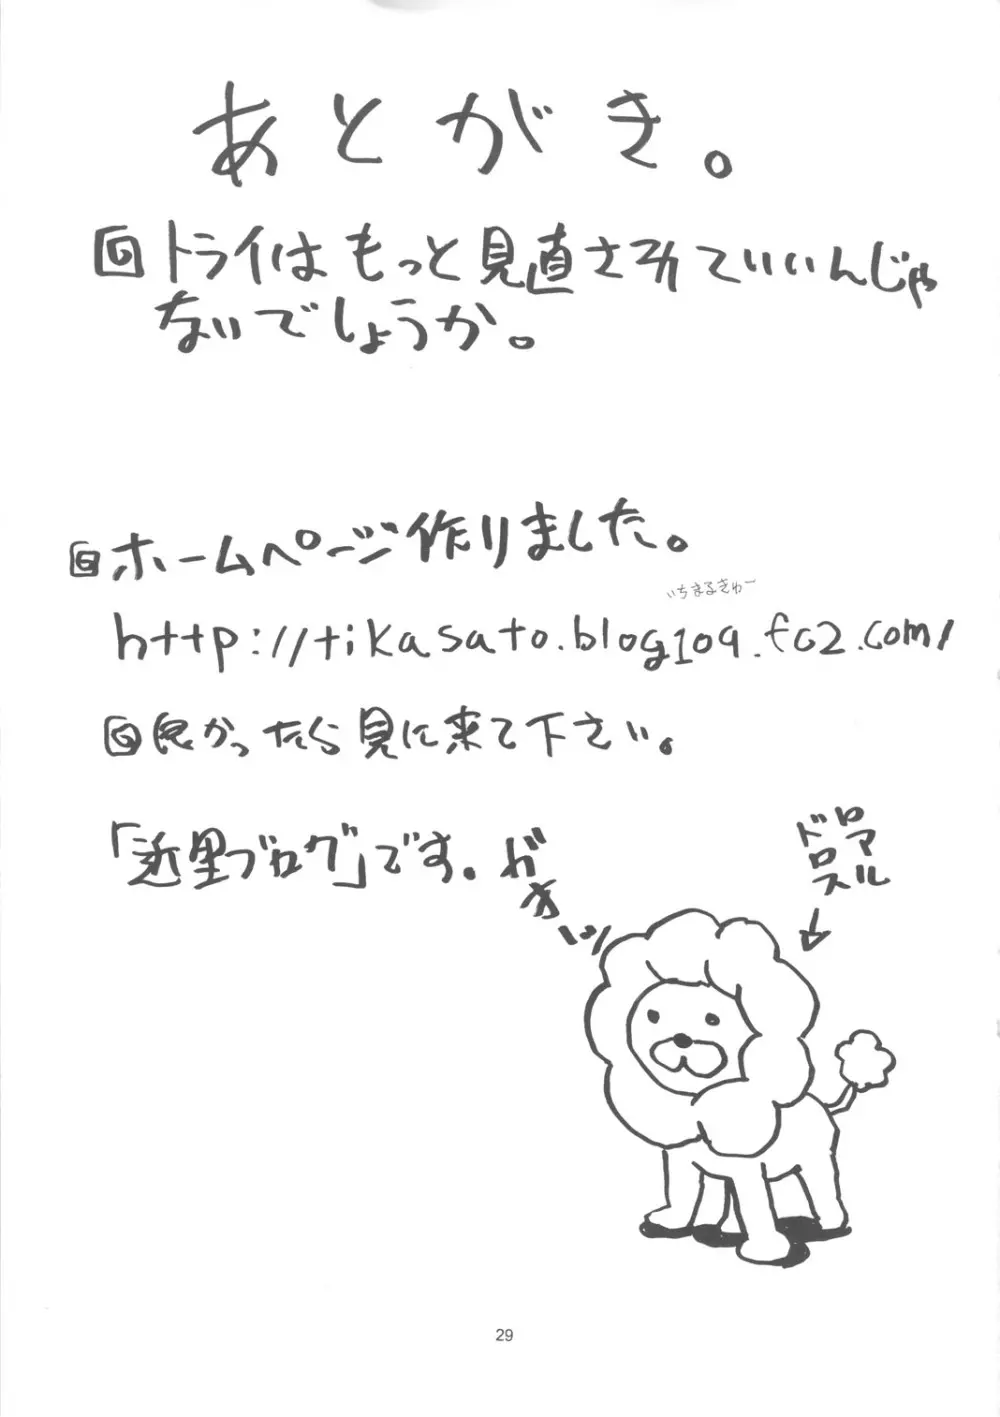 あとがき。
回トライはもっと見直されていいんじゃ
ないでしょうか。
回ホームページ作りました。
いちまるきゅー
http://tikasato.blog109.fc2.com/
回良かったら見に来て下さい。
「近里ブログ」です。
がおーッ
ロアアル
ドロス
29